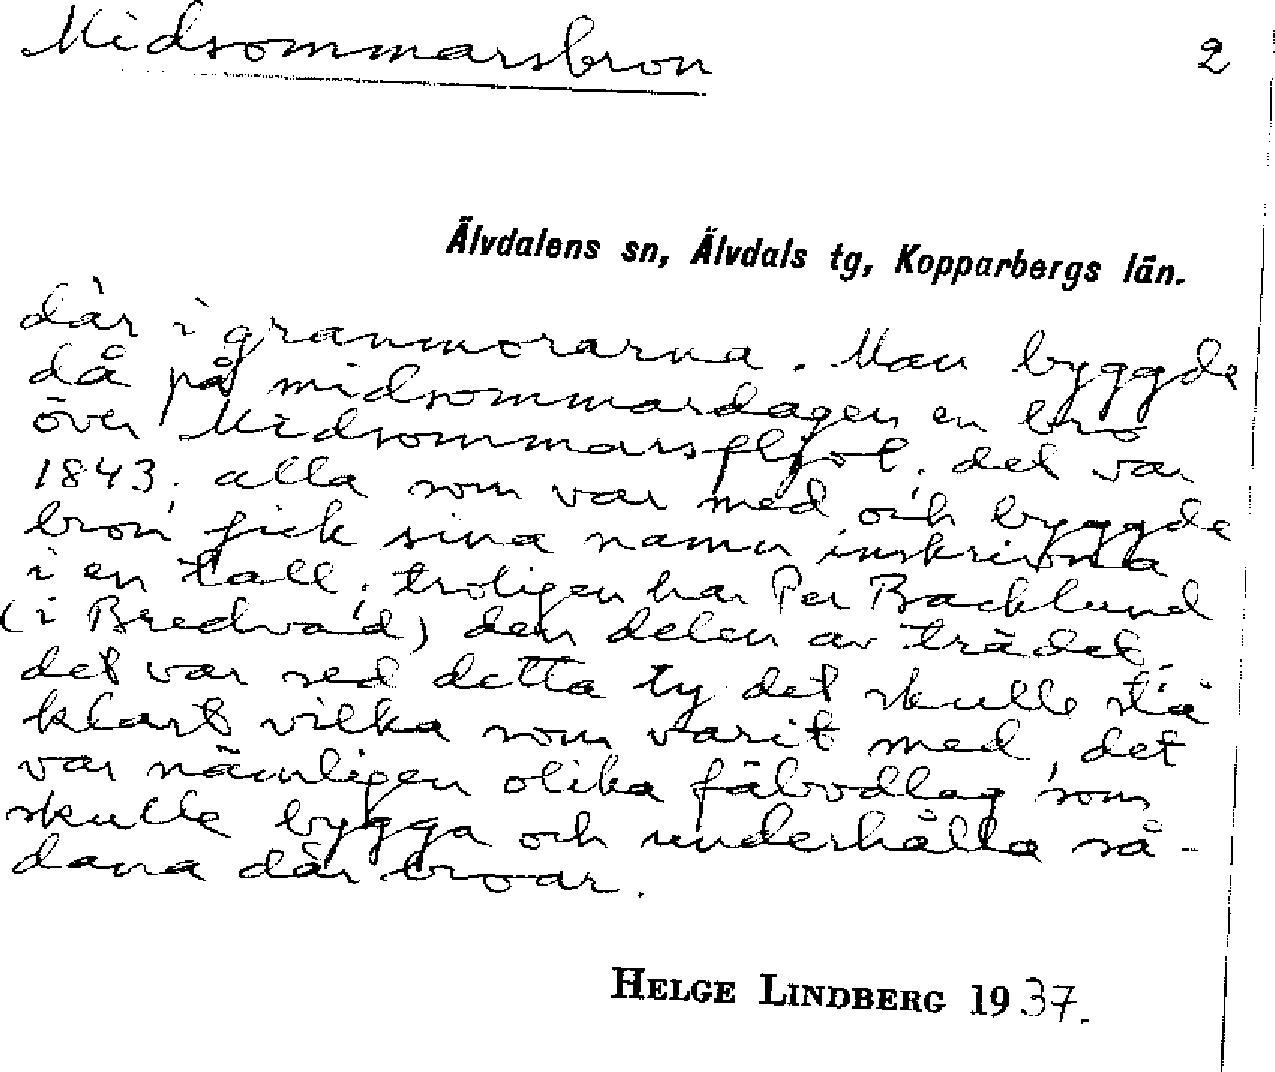 Midsommarsbron
2
Älvdalens sn, Älvdals tg, Kopparbergs län.
där i granmorarna. Man byggde
då på midsommardagen en bro
över Midsommarsfljot. det var
1843. alla som var med och byggde
bron fick sina namn inskrivna
i en tall. troligen har Per Backlund
(i Bredvad) den delen av trädet.
det var sed detta ty det skulle stå
klart vilka som varit med, det
var nämligen olika fäbodlag, som
skulle bygga och underhålla så-
dana där broar.
HELGE LINDBERG 1937.